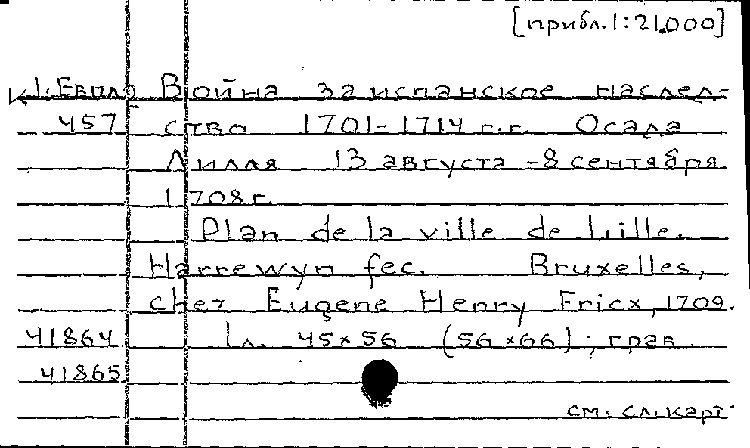 [прибл. 1:21.000]
К 1. Евпло Война за испанское наслед-
457 ство 1701-1714 г.г. Осада
Лилля 13 августа - 8 сентября
1708 г.
Plan de la ville de Lille.
Harrewyn fec. Bruxelles,
chez Eugene Henry Fricx, 1709.
41864 1 л. 45×56 (56×66); грав.
41865
см. сл. карт